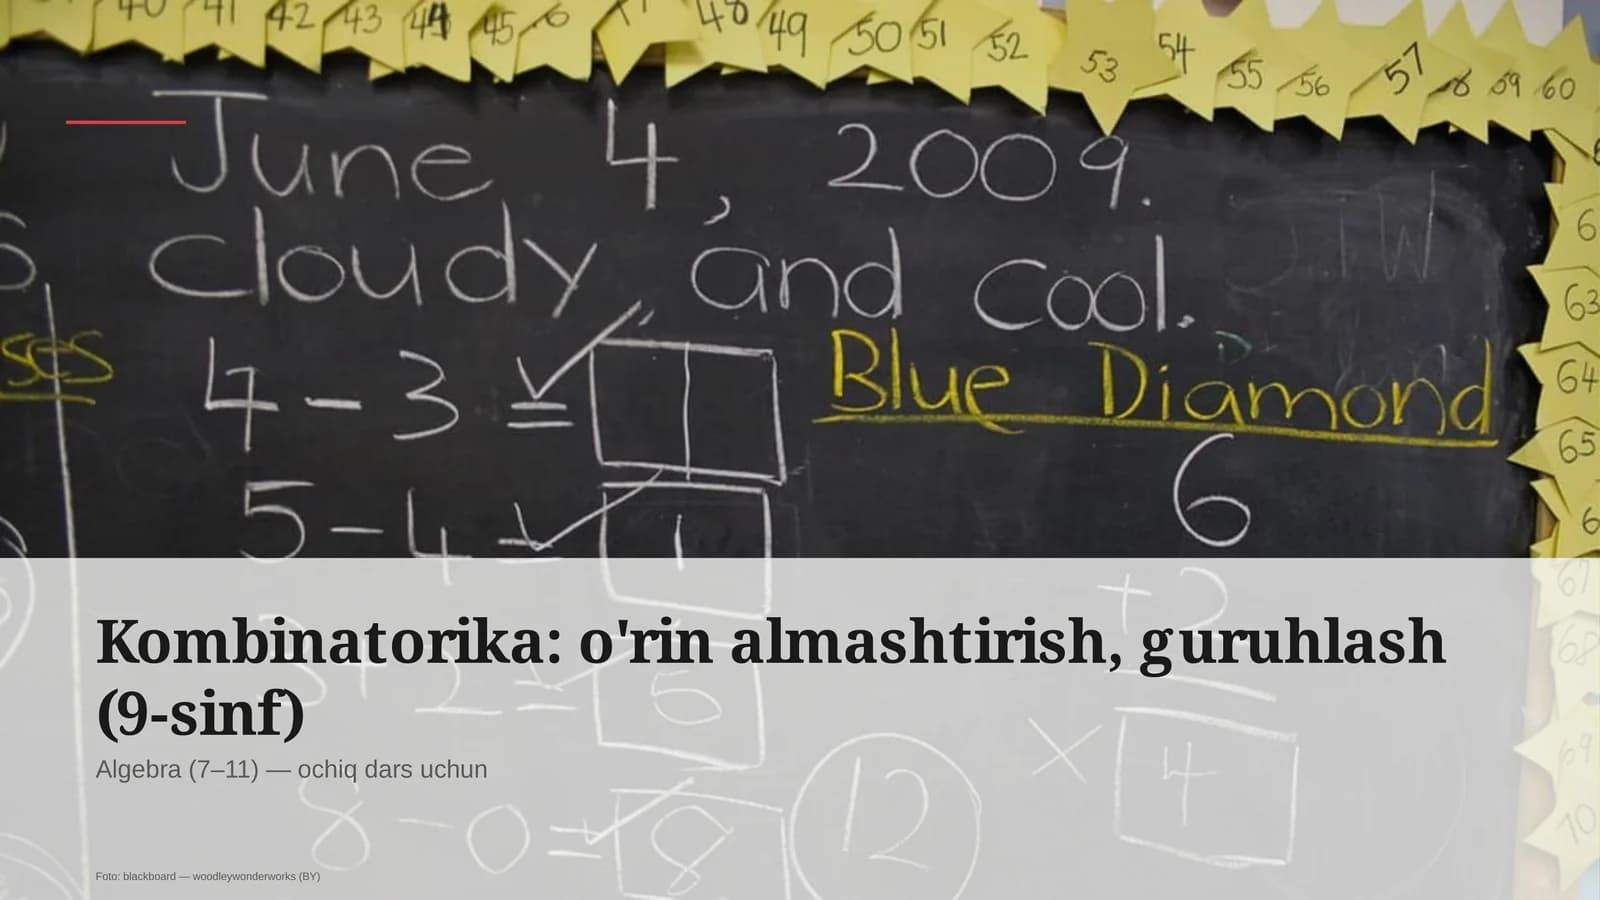 40 41 42 43 44 45 48 49 50 51 52 53 54 55 56 57 58 59 60
June 4, 2009.
cloudy, and cool.
ses
4 - 3 =
Blue Diamond
63
64
5 - 4 = 1
6
65
+2
67
68
Kombinatorika: o'rin almashtirish, guruhlash
(9-sinf)
3 + 2 = 5
× 4
69
Algebra (7–11) — ochiq dars uchun
8 - 0 = 8
12
70
Foto: blackboard — woodleywonderworks (BY)